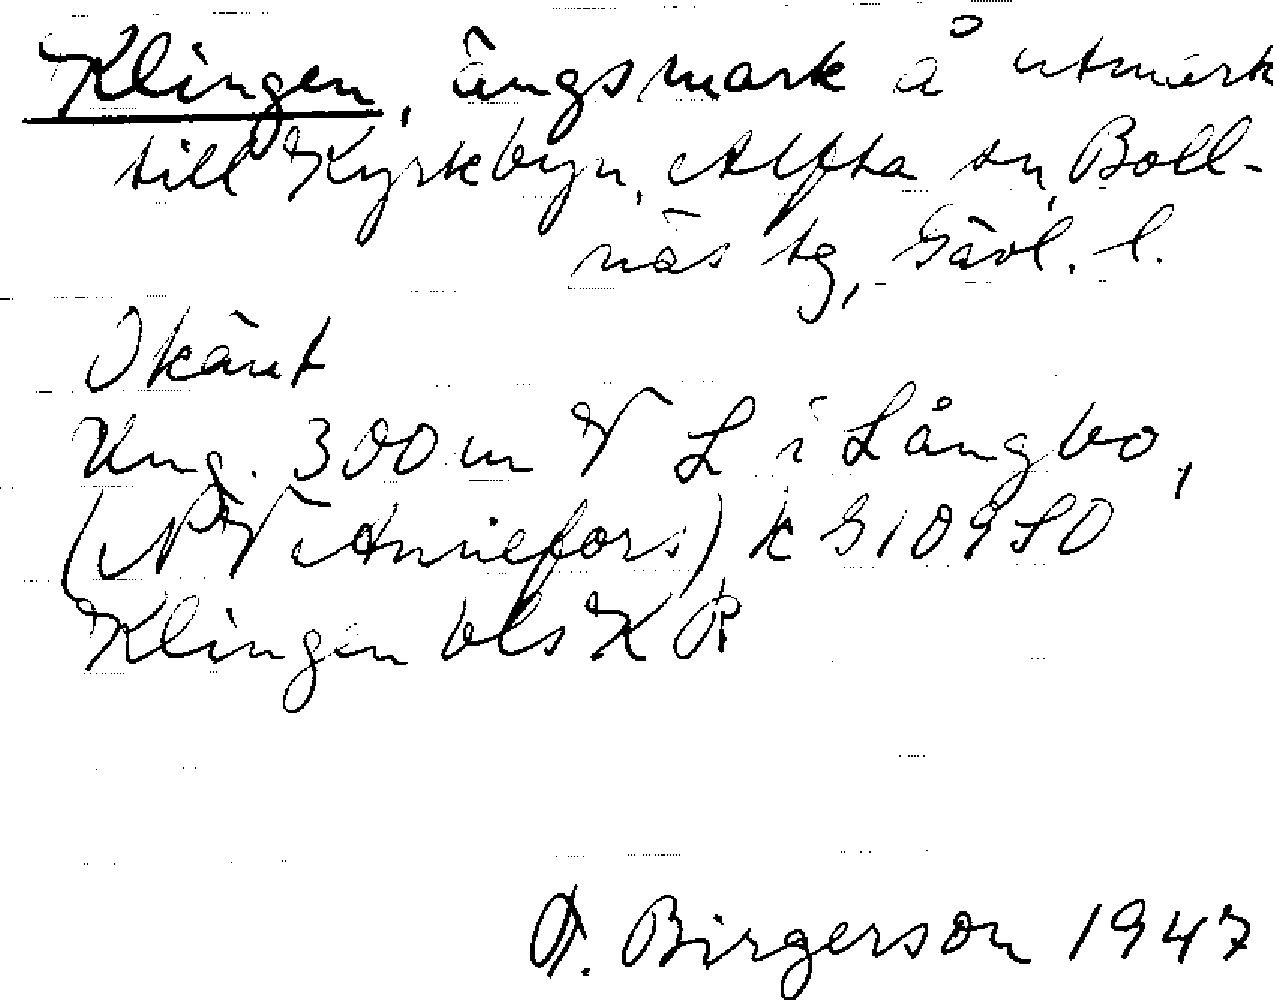 Klingen, ängsmark å utmark
till Kyrkbyn, Alfta sn, Boll-
näs tg, Gävl. l.
Okänt
Ung. 300 m V L i Långbo,
(NV Annefors) k G10950
Klingen bls KR
Birgerson 1947